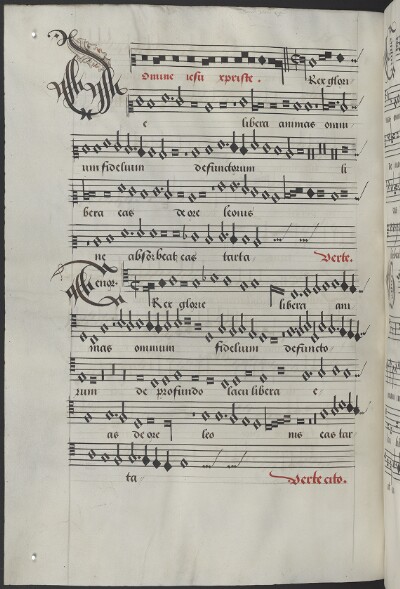 Domine iesu xpriste . Rex glori
e libera animas omni
um fidelium defunctorum li
bera eas de ore leonis
ne absorbeat eas tarta Verte.
Tenor. Rex glorie libera ani
mas omnium fidelium defuncto
rum de profundo lacu libera e
as de ore leo nis eas tar
ta Verte cito.